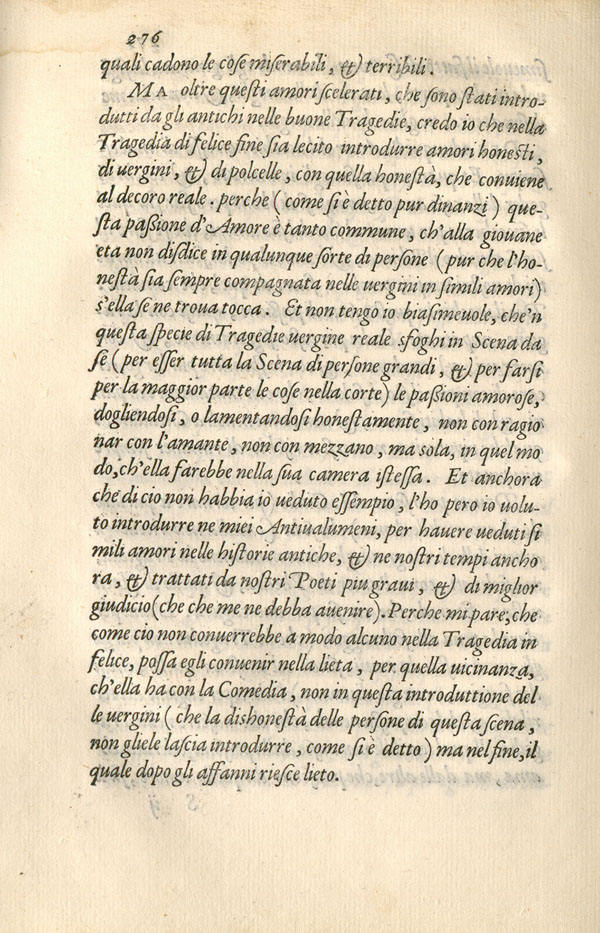 276
quali cadono le cose miserabili, & terribili.
MA oltre questi amori scelerati, che sono stati intro-
dutti da gli antichi nelle buone Tragedie, credo io che nella
Tragedia di felice fine sia lecito introdurre amori honesti,
di uergini, & di polcelle, con quella honestà, che conuiene
al decoro reale. perche ( come si è detto pur dinanzi ) que-
sta paßione d'Amore è tanto commune, ch'alla giouane
eta non disdice in qualunque sorte di persone ( pur che l'ho-
nestà sia sempre compagnata nelle uergini in simili amori)
s'ella se ne troua tocca. Et non tengo io biasimeuole, che'n
questa specie di Tragedie uergine reale sfoghi in Scena da
se ( per esser tutta la Scena di persone grandi, & per farsi
per la maggior parte le cose nella corte) le paßioni amorose,
dogliendosi, o lamentandosi honestamente, non con ragio
nar con l'amante, non con mezzano, ma sola, in quel mo
do, ch'ella farebbe nella sua camera istessa. Et anchora
che di cio non habbia io ueduto essempio, l'ho pero io uolu-
to introdurre ne miei Antiualumeni, per hauere ueduti si
mili amori nelle historie antiche, & ne nostri tempi ancho
ra, & trattati da nostri Poeti piu graui, & di miglior
giudicio (che che me ne debba auenire). Perche mi pare, che
come cio non conuerrebbe a modo alcuno nella Tragedia in
felice, possa egli conuenir nella lieta, per quella uicinanza,
ch'ella ha con la Comedia, non in questa introduttione del
le uergini ( che la dishonestà delle persone di questa scena,
non gliele lascia introdurre, come si è detto ) ma nel fine, il
quale dopo gli affanni riesce lieto.